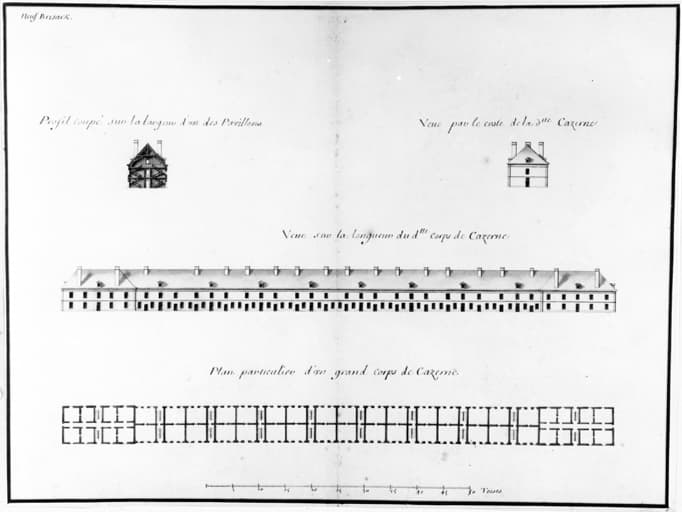 Neuf Brisack.
Profil coupé sur la largeur d'un des Pavillons
Veue par le coste de la dtte Cazerne
Veue sur la longueur du dtt corps de Cazerne
Plan particulier d'un grand corps de Cazerne.
5 10 15 20 25 30 35 40 45 50 Toises